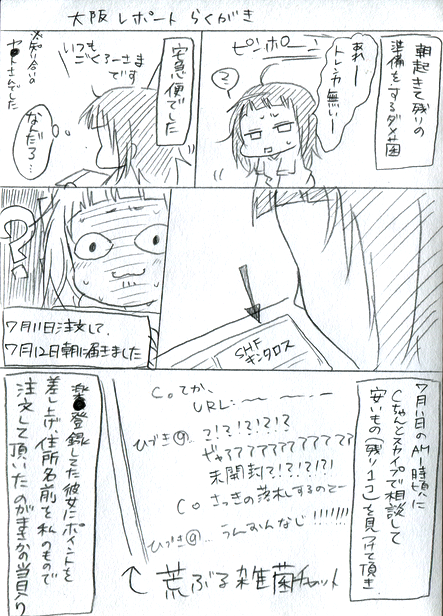 大阪レポートらくがき
朝起きて残りの
準備をするダメ菌
ピンポーン
あれー
トレンカ無いー
?
宅急便でした
いつも
ごくろーさま
です
※知り合いの
ヤ●トさんでした
なんだろ…
SHF
キンタロス
?!
7月11日注文して、
7月12日朝に届きました
7月11日のAM1時頃に
Cちゃんとスカイプで相談して
安いもの(残り1コ)を見つけて頂き
C○てか、
URL:〜〜
ひづき⑨…?!?!?!?!?
ギャァ?????????
未開封?!?!?!?!
C○さっきの落札するのとー
ひづき⑨…うんおんなじ!!!!!!!
↑荒ぶる雑菌チャット
楽●登録してた彼女にポイントを
差し上げ、住所名前を私のもので
注文して頂いたのがまさかの当日入り